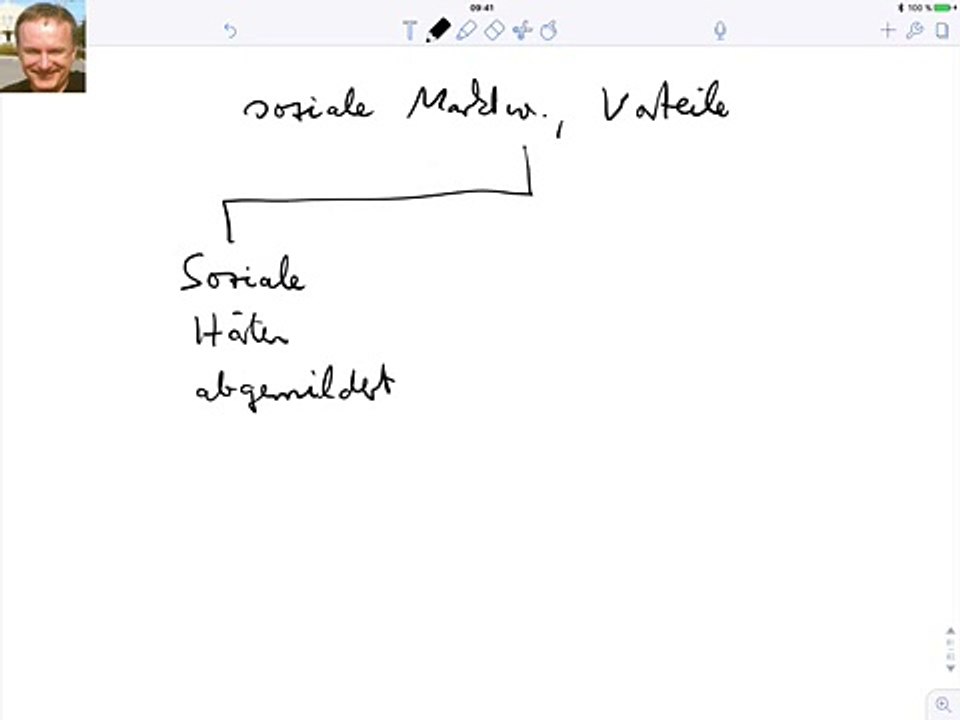 09:41
100 %
soziale Marktw., Vorteile
Soziale
Härten
abgemildert